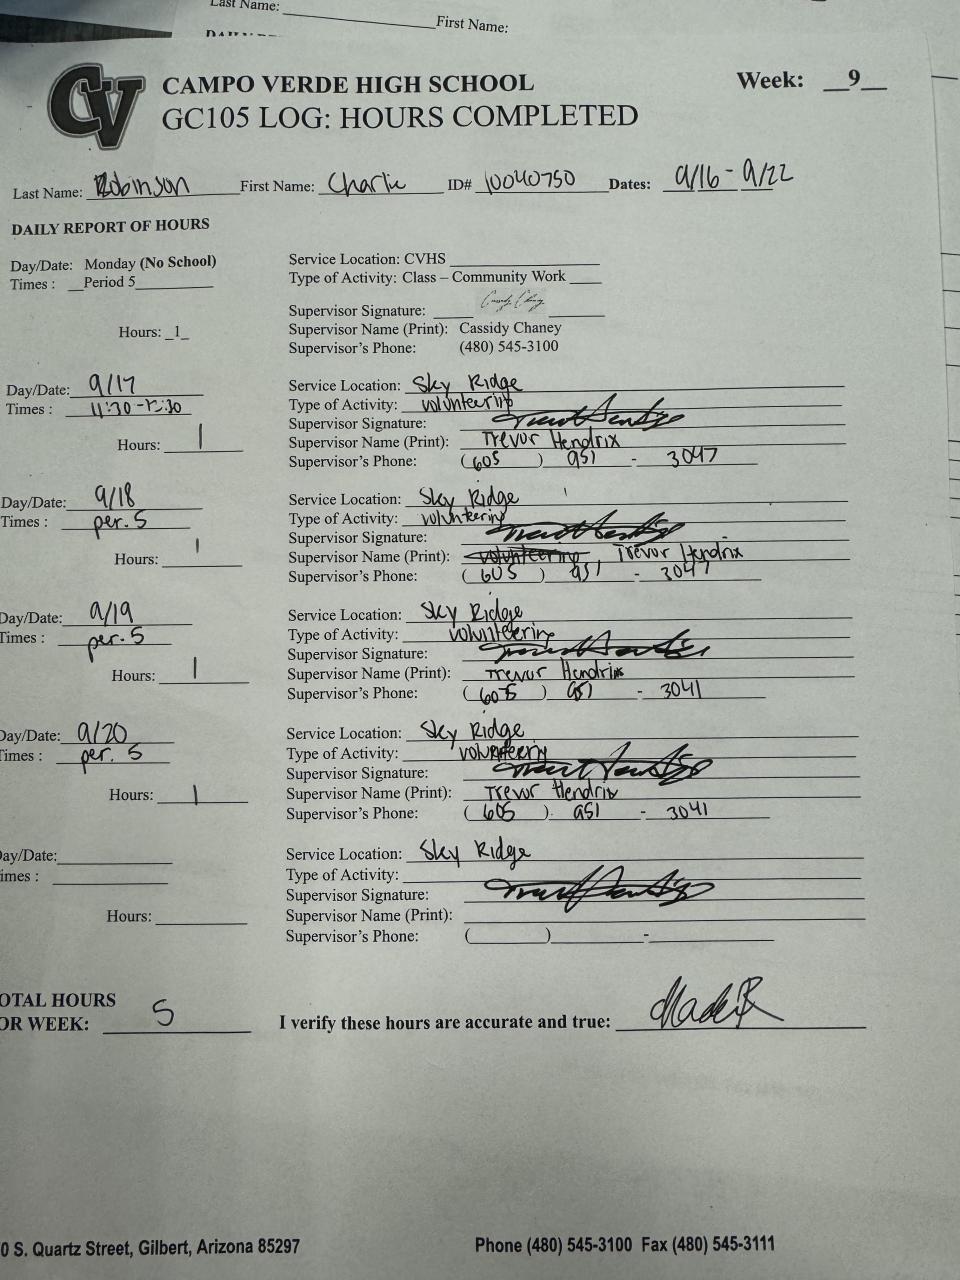 Last Name:
First Name:
CV
CAMPO VERDE HIGH SCHOOL
Week: 9
GC105 LOG: HOURS COMPLETED
Last Name: Robinson First Name: Charlie ID# 10040750 Dates: 9/16 - 9/22
DAILY REPORT OF HOURS
Day/Date: Monday (No School)
Times : Period 5
Hours: 1
Service Location: CVHS
Type of Activity: Class – Community Work
Supervisor Signature:
Supervisor Name (Print): Cassidy Chaney
Supervisor's Phone: (480) 545-3100
Day/Date: 9/17
Times : 11:30-12:30
Hours: 1
Service Location: Sky Ridge
Type of Activity: volunteering
Supervisor Signature:
Supervisor Name (Print): Trevor Hendrix
Supervisor's Phone: (605) 951 - 3047
Day/Date: 9/18
Times : per. 5
Hours: 1
Service Location: Sky Ridge
Type of Activity: volunteering
Supervisor Signature:
Supervisor Name (Print): volunteering Trevor Hendrix
Supervisor's Phone: (605) 951 - 3047
Day/Date: 9/19
Times : per. 5
Hours: 1
Service Location: Sky Ridge
Type of Activity: volunteering
Supervisor Signature:
Supervisor Name (Print): Trevor Hendrix
Supervisor's Phone: (605) 951 - 3041
Day/Date: 9/20
Times : per. 5
Hours: 1
Service Location: Sky Ridge
Type of Activity: volunteering
Supervisor Signature:
Supervisor Name (Print): Trevor Hendrix
Supervisor's Phone: (605) 951 - 3041
Day/Date:
Times :
Hours:
Service Location: Sky Ridge
Type of Activity:
Supervisor Signature:
Supervisor Name (Print):
Supervisor's Phone: ( ) -
OTAL HOURS
OR WEEK: 5
I verify these hours are accurate and true:
0 S. Quartz Street, Gilbert, Arizona 85297
Phone (480) 545-3100 Fax (480) 545-3111